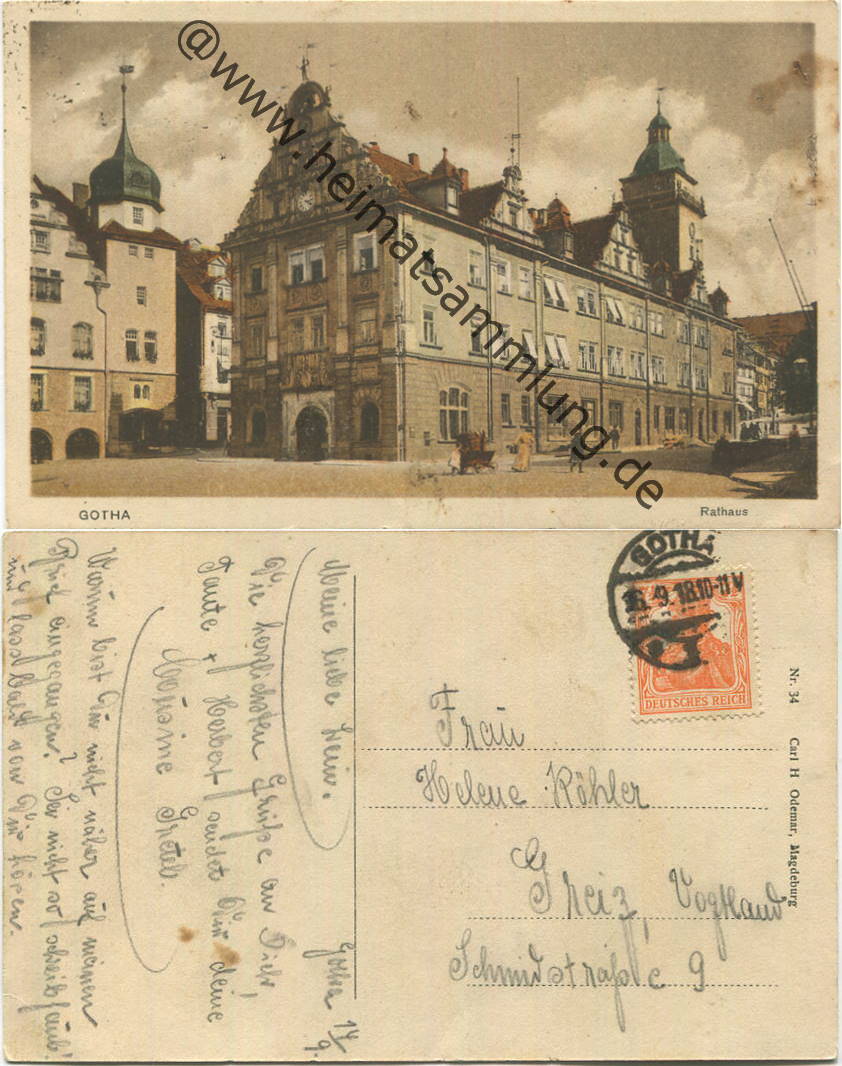 @www.heimatsammlung.de
GOTHA
Rathaus
GOTHA
16.9.18.10-11V
DEUTSCHES REICH
Nr. 34 Carl H Odemar, Magdeburg
Frau
Helene Köhler
Greiz, Vogtland
Schmidtstraße 9
Gotha 14/9.
Meine liebe
Die herzlichsten Grüße an Dich,
Tante + Herbert sendet Dir deine
Cousine Gretel.
Warum bist Du nicht näher auf meinen
Brief eingegangen? Sei nicht so schreibfaul!
und lass bald von Dir hören.